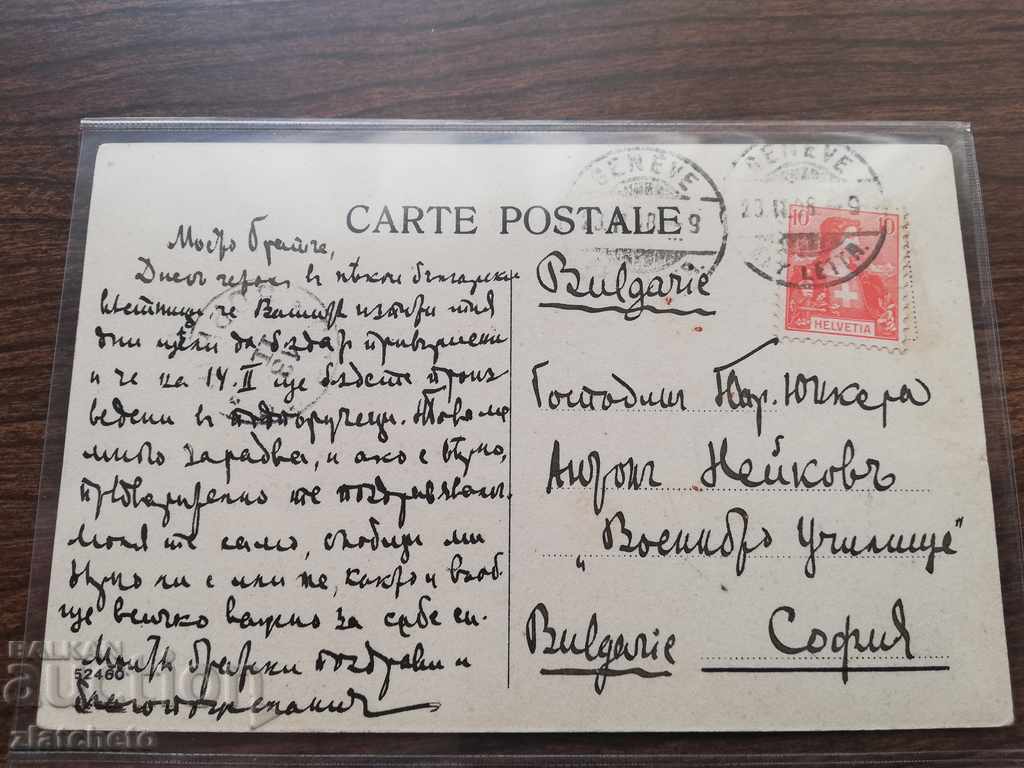 CARTE POSTALE
GENÈVE
GENÈVE
LETTR.
10 10
HELVETIA
Днесъ четохъ въ нѣкои български
вестници, че Вашия
дни
и че на 14.II ще бъдете произ
ведени в подпоручици. Това ме
много зарадва, и ако е вѣрно,
предварително те поздравявам.
Моля те само, съобщи ми
вѣрно ли е или не, както и въоб
ще всичко важно за себе си.
братски поздрави и
52460
Bulgarie
Господинъ Пор. Юнкера
Антонъ Нейковъ
"Военното Училище"
Bulgarie София
BALKAN
auction
zlatcheto